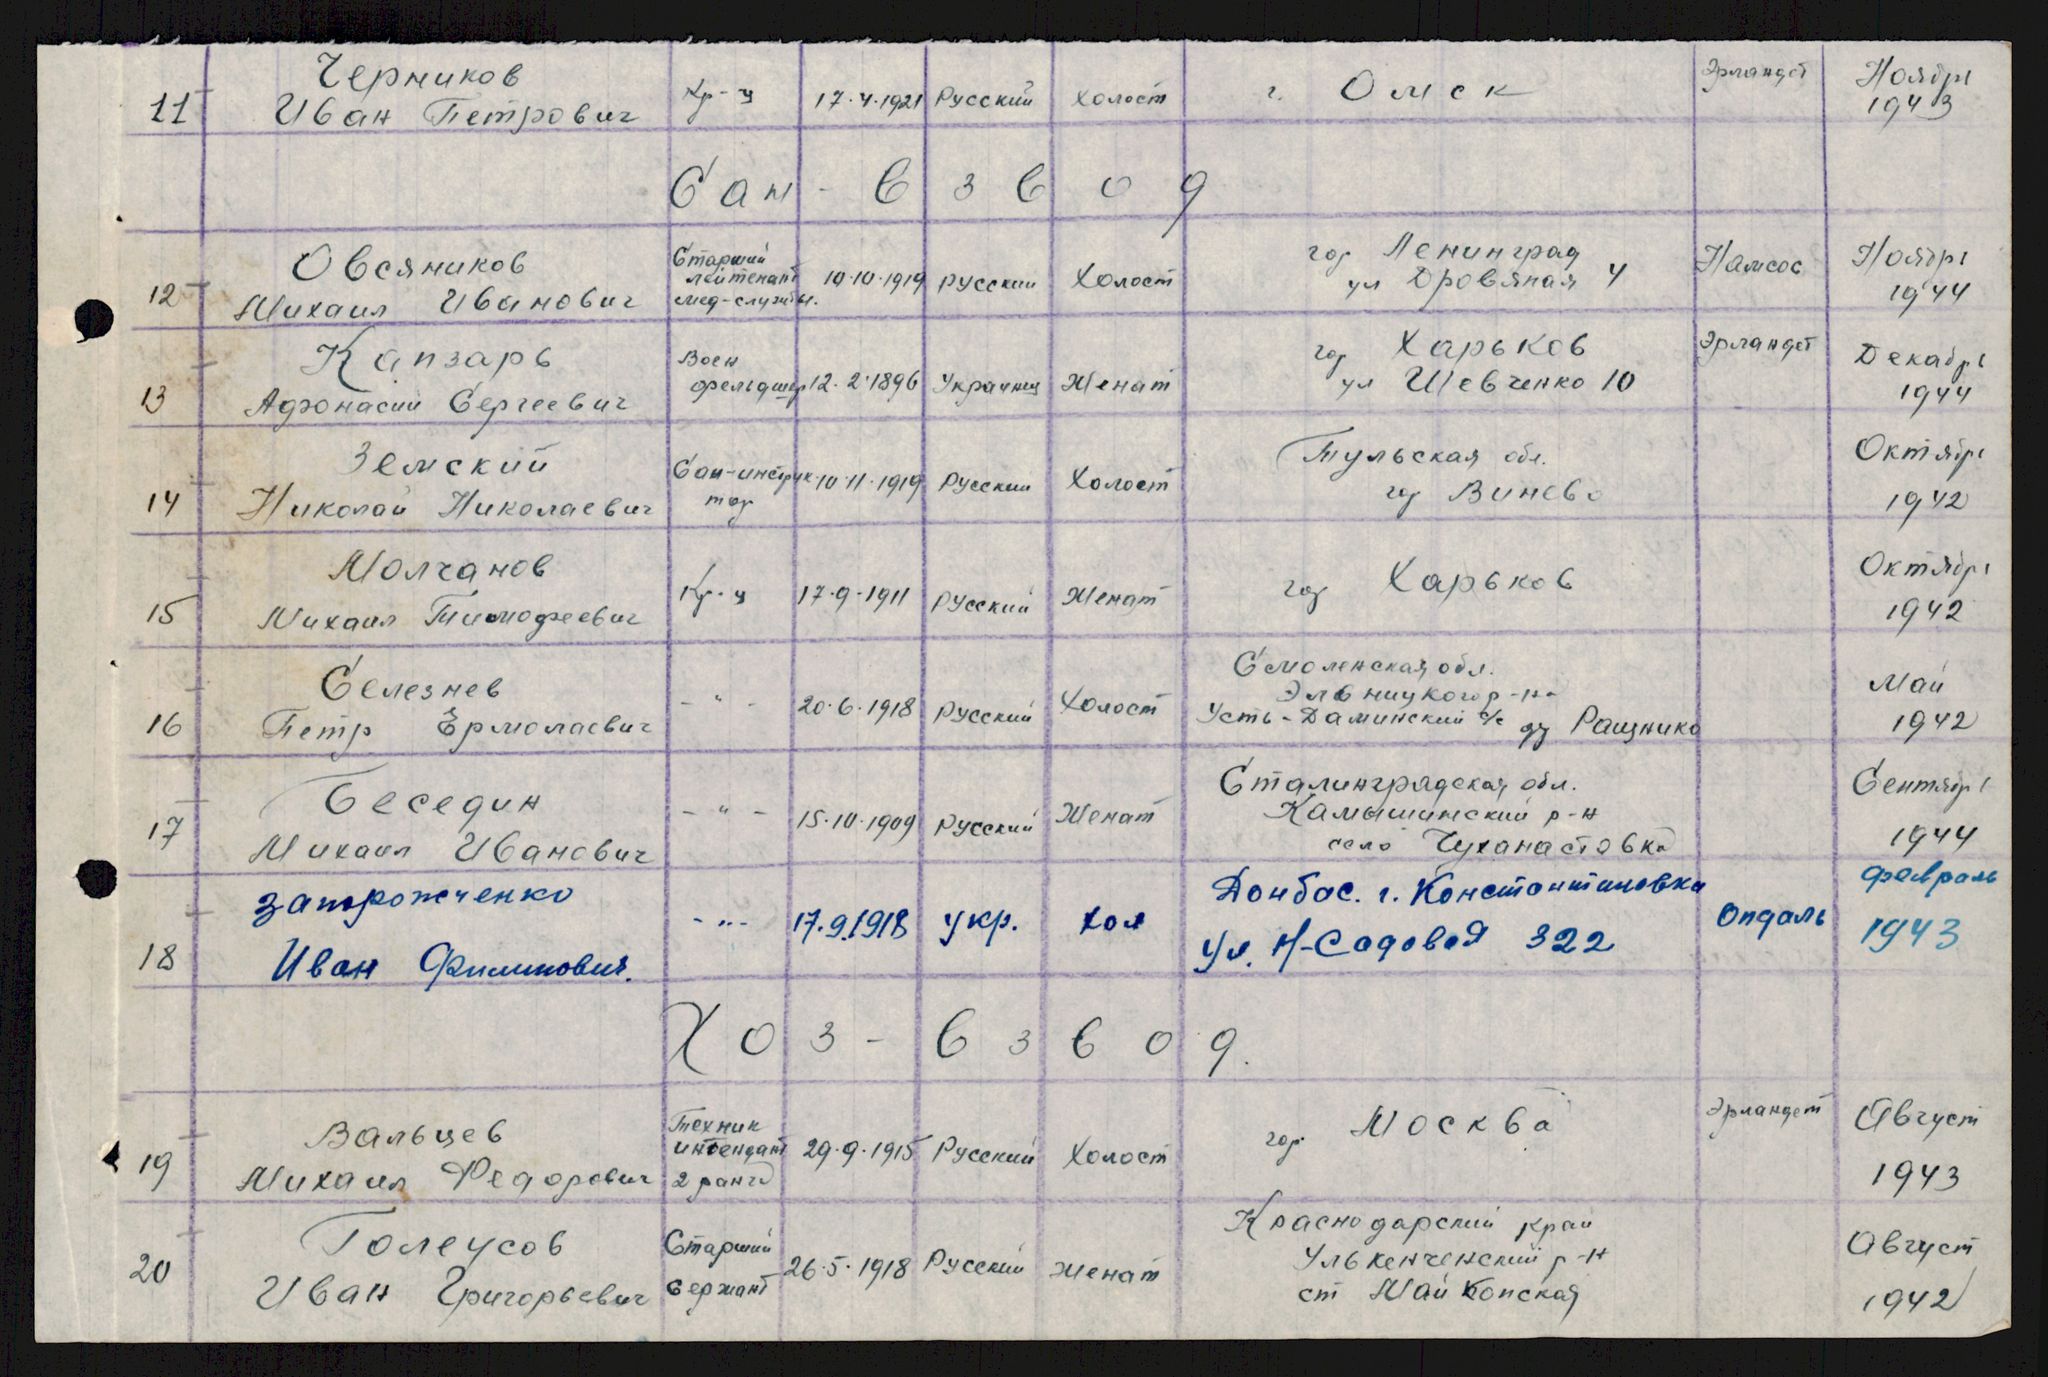 11 Черников Иван Петрович Кр-ц 17.4.1921 Русский Холост г. Омск Эрландет Ноябрь 1943
Сан-взвод
12 Овсяников Михаил Иванович Старший лейтенант мед-службы. 10.10.1919 русский Холост гор Ленинград ул Дровяная 4 Намсос Ноябрь 1944
13 Капзарь Афонасий Сергеевич Воен фельдшер 12.2.1896 Украинец Женат гор Харьков ул Шевченко 10 Эрландет Декабрь 1944
14 Земский Николай Николаевич Сан-инструктор 10.11.1919 Русский Холост Тульская обл. гор Винево Октябрь 1942
15 Молчанов Михаил Тимофеевич Кр-ц 17.9.1911 Русский Женат гор Харьков Октябрь 1942
16 Селезнев Петр Ермолаевич - " - 20.6.1918 Русский Холост Смоленская обл. Эльницкого р-на Усть-Даминский с/с дер Ращнико Май 1942
17 Беседин Михаил Иванович - " - 15.10.1909 Русский Женат Сталинградская обл. Камышинский р-н село Чуханастовка Сентябрь 1944
18 Запорожченко Иван Филипович. - " - 17.9.1918 Укр. Хол Донбас. г. Константиновка Ул. Н-Садовая 322 Опдаль Февраль 1943
Хоз-взвод.
19 Вальцев Михаил Федорович Техник интендант 2 ранга 29.9.1915 Русский Холост гор. Москва Эрландет Август 1943
20 Голеусов Иван Григорьевич Старший сержант 26.5.1918 Русский Женат Краснодарский край Улькенченский р-н ст Майкопская Август 1942